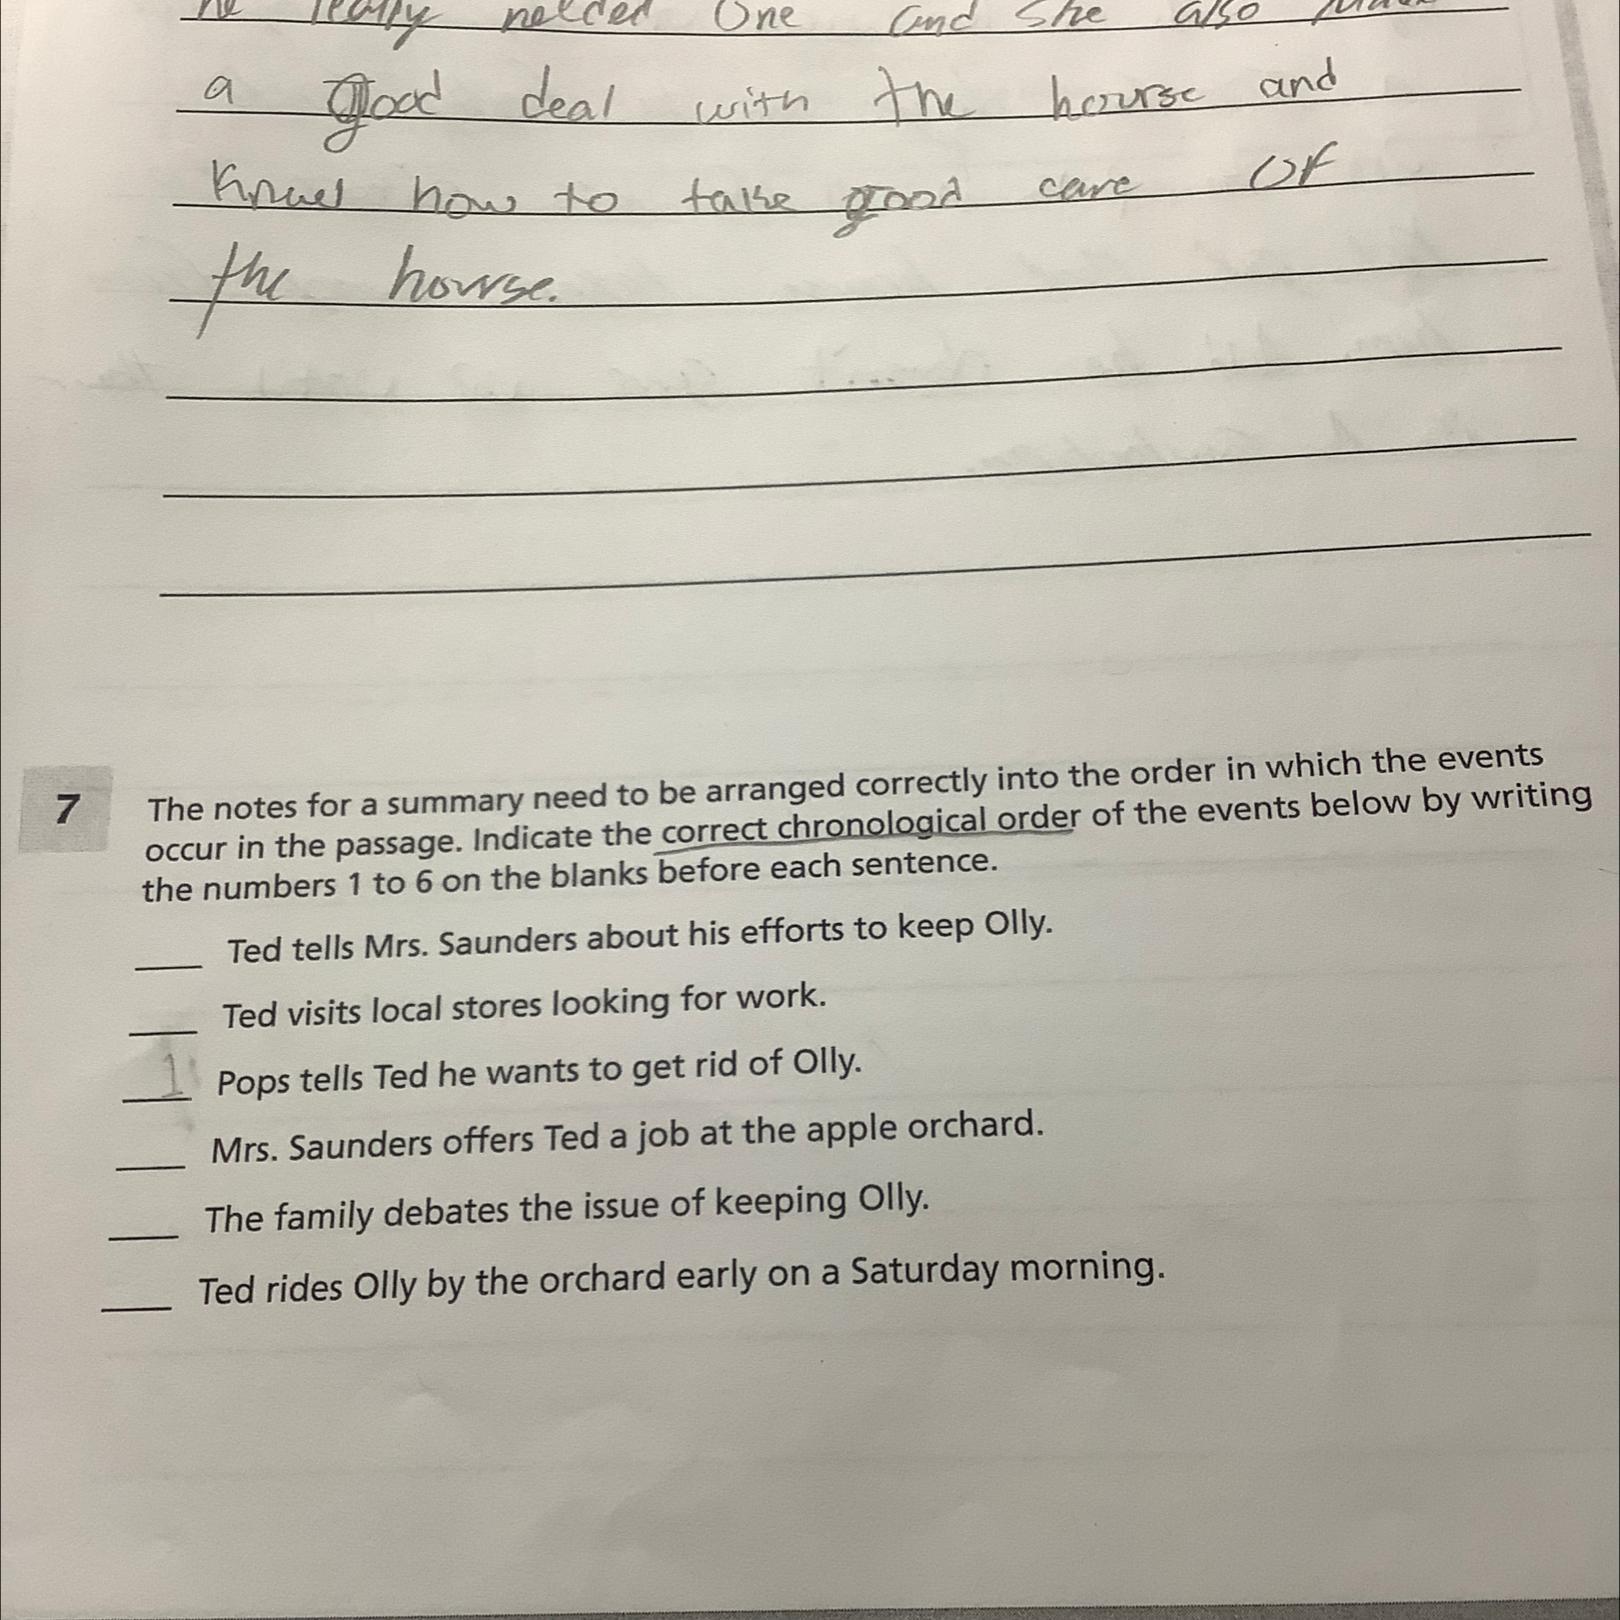 he really needed one and she also
a good deal with the hourse and
Knael how to take good care of
the hourse.
7 The notes for a summary need to be arranged correctly into the order in which the events
occur in the passage. Indicate the correct chronological order of the events below by writing
the numbers 1 to 6 on the blanks before each sentence.
Ted tells Mrs. Saunders about his efforts to keep Olly.
Ted visits local stores looking for work.
1 Pops tells Ted he wants to get rid of Olly.
Mrs. Saunders offers Ted a job at the apple orchard.
The family debates the issue of keeping Olly.
Ted rides Olly by the orchard early on a Saturday morning.